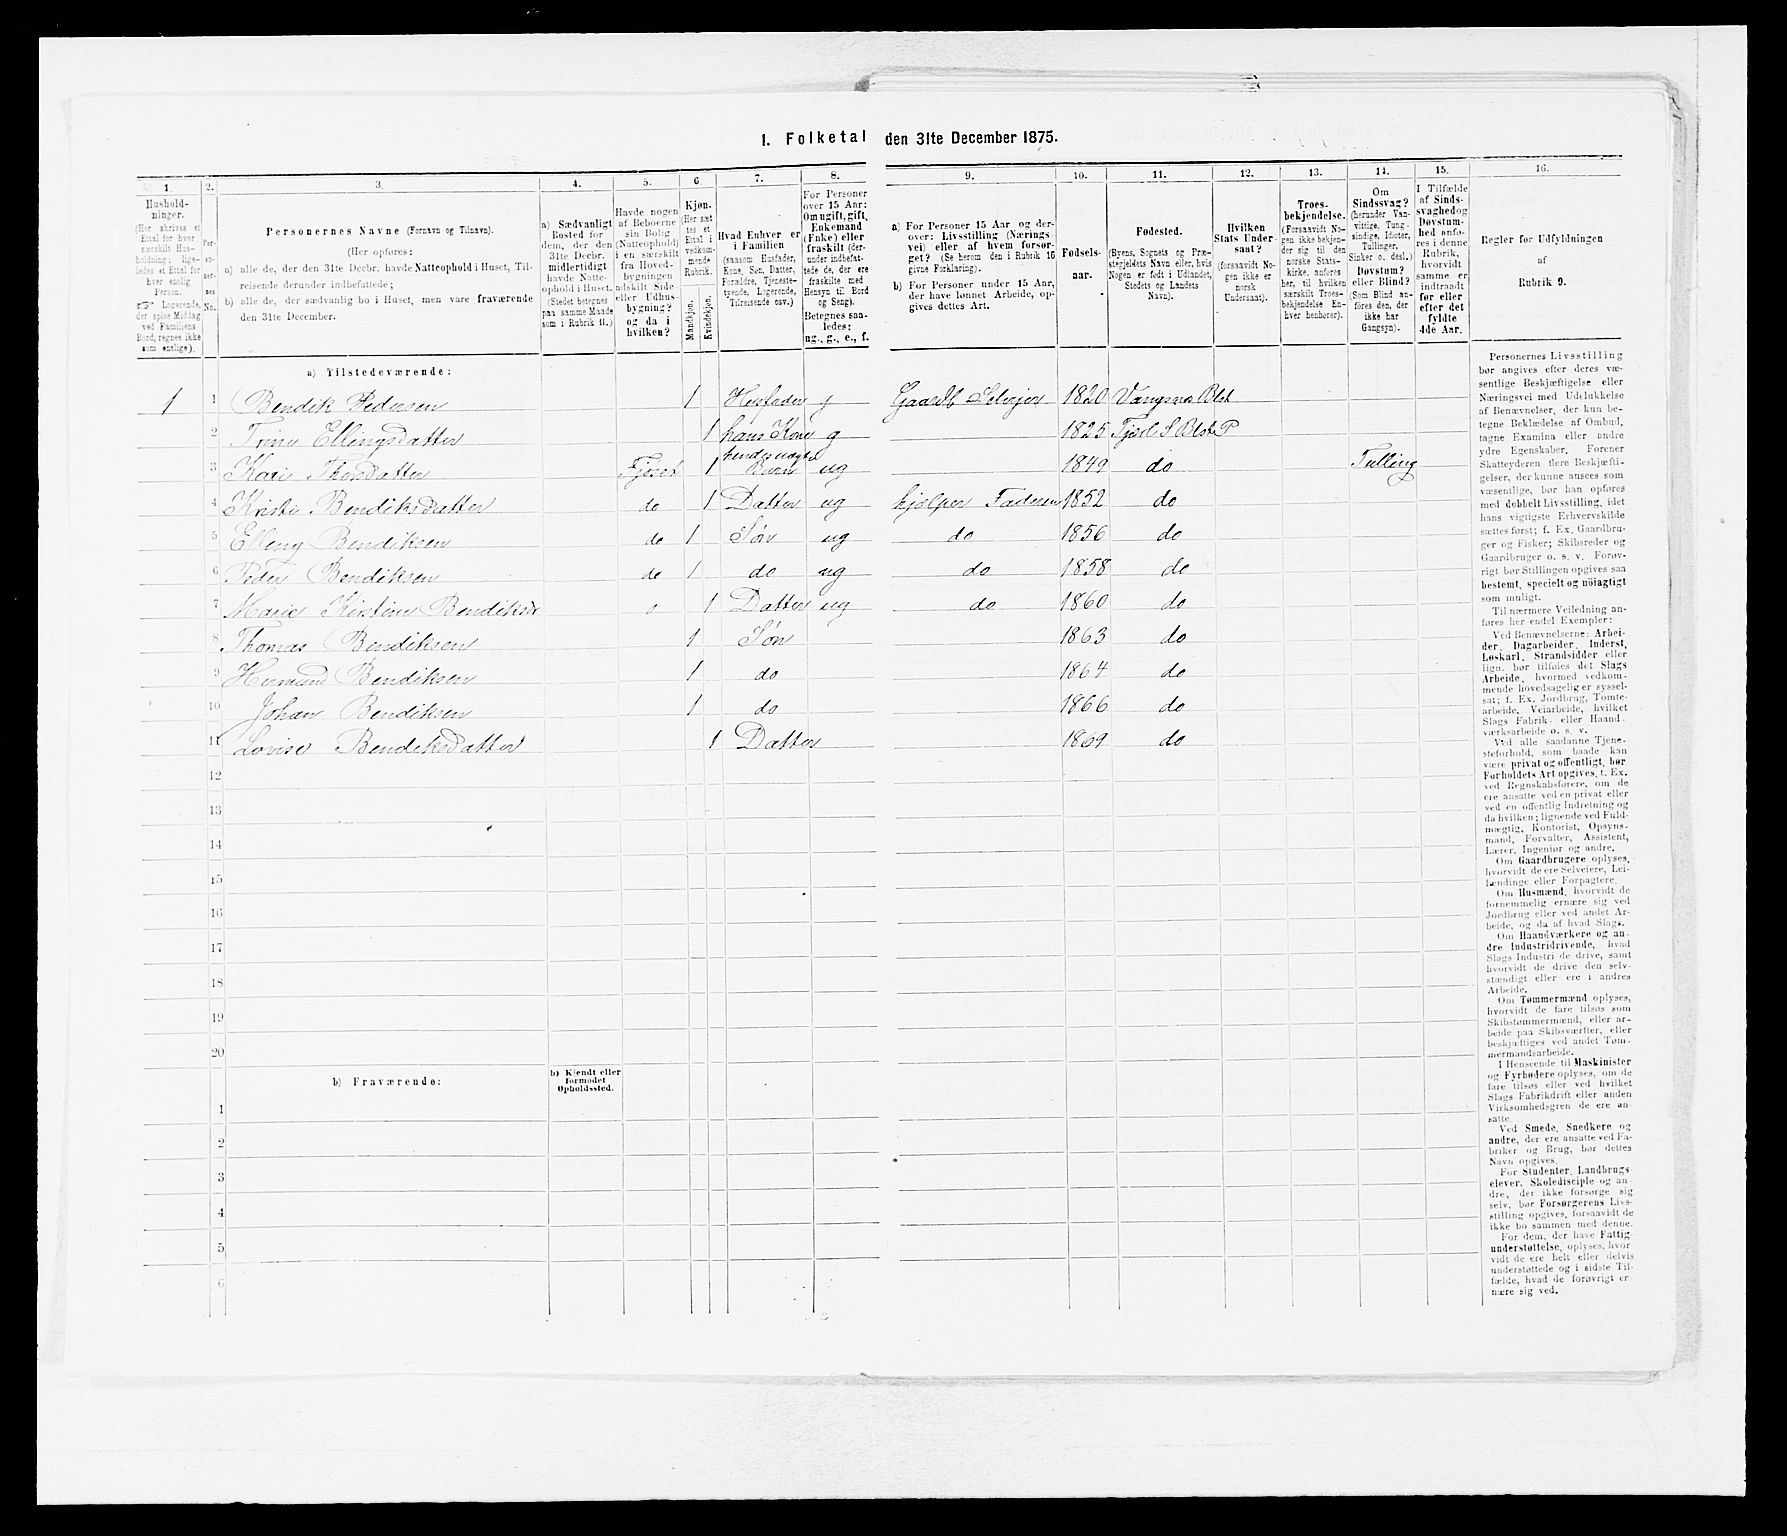 1. Folketal den 31te December 1875.
1.
2.
3.
4.
5.
6.
7.
8.
9.
10.
11.
12.
13.
14.
15.
16.
Hushold-
ninger.
(Her skrives et
Ettal for hver
særskilt Hus-
holdning; lige-
ledes et Ettal for
hver enslig
Person.
☞ Logerende,
der spise Middag
ved Familiens
Bord, regnes ikke
som enslige).
Per-
so-
ner-
nes
No.
Personernes Navne (Fornavn og Tilnavn).
(Her opføres:
a) alle de, der den 31te Decbr. havde Natteophold i Huset, Til-
reisende derunder indbefattede;
b) alle de, der sædvanlig bo i Huset, men vare fraværende
den 31te December.
a) Sædvanligt
Bosted for
dem, der den
31te Decbr.
midlertidigt
havde Natte-
ophold i Huset.
(Stedet betegnes
paa samme Maade
som i Rubrik 11.)
Havde nogen
af Beboerne
sin Bolig
(Natteophold)
i en særskilt
fra Hoved-
bygningen
adskilt Side-
eller Udhus-
bygning?
og da i
hvilken?
Kjøn.
(Her sæt-
tes et
Ettal i
vedkom-
mende
Rubrik.
Mandkjøn.
Kvindekjøn.
Hvad Enhver er
i Familien
(saasom Husfader,
Kone, Søn, Datter,
Forældre, Tjeneste-
tyende, Logerende,
Tilreisende osv.)
For Personer
over 15 Aar:
Om ugift, gift,
Enkemand
(Enke) eller
fraskilt (der-
under indbefat-
tede de, der ere
fraskilte med
Hensyn til Bord
og Seng).
Betegnes saa-
ledes:
ug., g., e., f.
a) For Personer 15 Aar og der-
over: Livsstilling (Nærings-
vei) eller af hvem forsør-
get? (Se herom den i Rubrik 16
givne Forklaring).
b) For Personer under 15 Aar,
der have lønnet Arbeide, op-
gives dettes Art.
Fødsels-
aar.
Fødested.
(Byens, Sognets og Præ-
stegjeldets Navn eller, hvis
Nogen er født i Udlandet,
Stedets og Landets
Navn).
Hvilken
Stats Under-
saat?
(forsaavidt No-
gen ikke er
norsk
Undersaat).
Troes-
bekjendelse.
(Forsaavidt No-
gen ikke bekjen-
der sig til den
norske Stats-
kirke, anføres
her, til hvilken
særskilt Troes-
bekjendelse En-
hver henhører).
Om
Sindssvag?
(herunder Van-
vittige, Tung-
sindige, Idioter,
Tullinger,
Sinker o. desl.)
Døvstum?
eller Blind?
(Som Blind an-
føres den, der
ikke har
Gangsyn).
I Tilfælde
af Sinds-
svaghed og
Døvstum-
hed anfø-
res i denne
Rubrik,
hvorvidt
samme er
indtraadt
før eller
efter det
fyldte
4de Aar.
Regler for Udfyldningen
af
Rubrik 9.
a) Tilstedeværende:
1 1 Bendik Pedersen 1 Husfader g Gaardb Selveier 1820 Vangsnes Blst
2 Trine Ellingsdatter 1 hans Kone g 1825 Fjærl S Blst P
3 Kari Thomdatter Fjøset 1 hendes uægte Barn ug 1849 do Tulling
4 Kristi Bendiksdatter do 1 Datter ug hjelper Faderen 1852 do
5 Elling Bendiksen do 1 Søn ug do 1856 do
6 Peder Bendiksen do 1 do ug do 1858 do
7 Marie Kirstine Bendiksdr o 1 Datter ug do 1860 do
8 Thomas Bendiksen 1 Søn 1863 do
9 Hermund Bendiksen 1 do 1864 do
10 Johan Bendiksen 1 do 1866 do
11 Lovise Bendiksdatter 1 Datter 1869 do
12
13
14
15
16
17
18
19
20
b) Fraværende:
b) Kjendt eller
formodet
Opholdssted.
1
2
3
4
5
6
Personernes Livsstilling
bør angives efter deres væ-
sentlige Beskjæftigelse eller
Næringsvei med Udelukkelse
af Benævnelser, der kun be-
tegne Beklædelse af Ombud,
tagne Examina eller andre
ydre Egenskaber. Forener
Skatteyderen flere Beskjæfti-
gelser, der kunne ansees som
væsentlige, bør han opføres
med dobbelt Livsstilling, idet
hans vigtigste Erhvervskilde
sættes først; f. Ex. Gaardbru-
ger og Fisker; Skibsreder og
Gaardbruger o. s. v. Forøv-
rigt bør Stillingen opgives saa
bestemt, specielt og nøiagtigt
som muligt.
Til nærmere Veiledning an-
føres her endel Exempler:
Ved Benævnelserne: Arbei-
der, Dagarbeider, Inderst,
Løskarl, Strandsidder eller
lign. bør tilføies det Slags
Arbeide, hvormed vedkom-
mende hovedsagelig er syssel-
sat; f. Ex. Jordbrug, Tomte-
arbeide, Veiarbeide, hvilket
Slags Fabrik- eller Haand-
værksarbeide o. s. v.
Ved alle saadanne Tjene-
steforhold, som baade kan
være privat og offentligt, bør
Forholdets Art opgives, t. Ex.
ved Regnskabsførere, om de
ere ansatte ved en privat eller
ved en offentlig Indretning og
da hvilken; lignende ved Fuld-
mægtig, Kontorist, Opsyns-
mand, Forvalter, Assistent,
Lærer, Ingeniør og andre.
Om Gaardbrugere oplyses,
hvorvidt de ere Selveiere, Lei-
lændinge eller Forpagtere.
Om Husmænd, hvorvidt de
fornemmelig ernære sig ved
Jordbrug eller ved andet Ar-
beide, og da af hvad Slags.
Om Haandværkere og an-
dre Industridrivende, hvad
Slags Industri de drive, samt
hvorvidt de drive den selv-
stændigt eller ere i andres
Arbeide.
Om Tømmermænd oplyses,
hvorvidt de fare tilsøs som
Skibstømmermænd, eller ar-
beide paa Skibsværfter, eller
beskjæftiges ved andet Tøm-
mermandsarbeide.
I Henseende til Maskinister
og Fyrbødere oplyses, om de
fare tilsøs eller ved hvilket
Slags Fabrikdrift eller anden
Virksomhedsgren de ere an-
satte.
Ved Smede, Snedkere og
andre, der ere ansatte ved Fa-
briker og Brug, bør dettes
Navn opgives.
For Studenter, Landbrugs-
elever, Skoledisciple og an-
dre, der ikke forsørge sig
selv, bør Forsørgerens Livs-
stilling opgives, forsaavidt de
ikke bo sammen med denne.
For dem, der have Fattig-
understøttelse, oplyses, hvor-
vidt de ere helt eller delvis
understøttede og i sidste Til-
fælde, hvad de forøvrigt er-
nære sig ved.